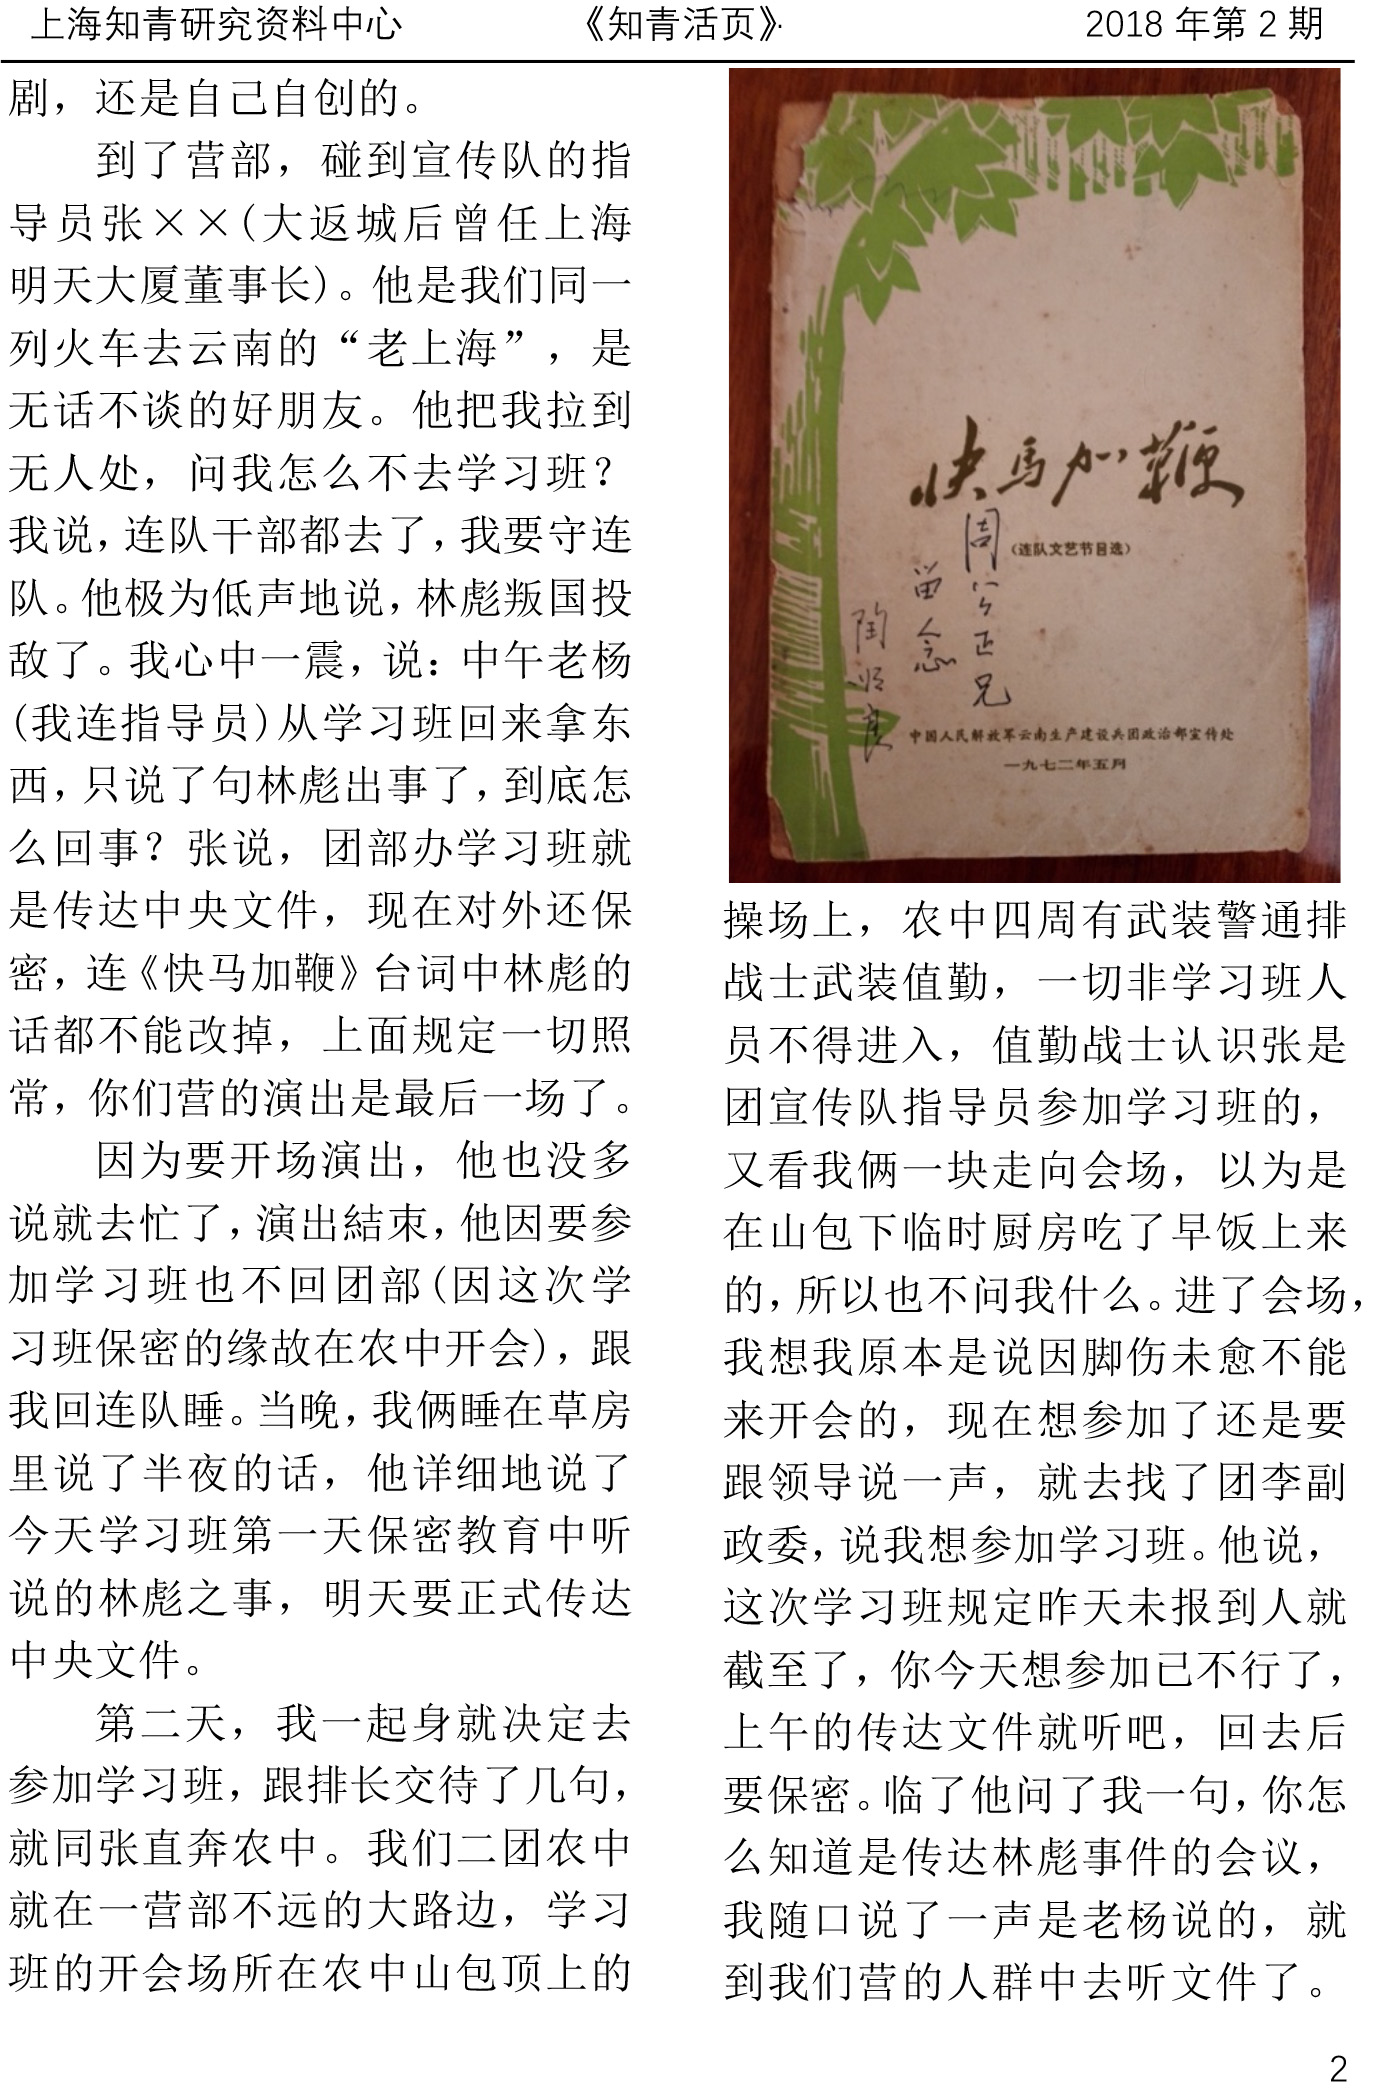 上海知青研究资料中心 《知青活页》 2018 年第 2 期
剧，还是自己自创的。
到了营部，碰到宣传队的指
导员张××(大返城后曾任上海
明天大厦董事长)。他是我们同一
列火车去云南的“老上海”，是
无话不谈的好朋友。他把我拉到
无人处，问我怎么不去学习班？
我说，连队干部都去了，我要守连
队。他极为低声地说，林彪叛国投
敌了。我心中一震，说：中午老杨
(我连指导员)从学习班回来拿东
西，只说了句林彪出事了，到底怎
么回事？张说，团部办学习班就
是传达中央文件，现在对外还保
密，连《快马加鞭》台词中林彪的
话都不能改掉，上面规定一切照
常，你们营的演出是最后一场了。
因为要开场演出，他也没多
说就去忙了，演出結束，他因要参
加学习班也不回团部(因这次学
习班保密的缘故在农中开会)，跟
我回连队睡。当晚，我俩睡在草房
里说了半夜的话，他详细地说了
今天学习班第一天保密教育中听
说的林彪之事，明天要正式传达
中央文件。
第二天，我一起身就决定去
参加学习班，跟排长交待了几句，
就同张直奔农中。我们二团农中
就在一营部不远的大路边，学习
班的开会场所在农中山包顶上的
快马加鞭
(连队文艺节目选)
周公正兄
留念
中国人民解放军云南生产建设兵团政治部宣传处
一九七二年五月
操场上，农中四周有武装警通排
战士武装值勤，一切非学习班人
员不得进入，值勤战士认识张是
团宣传队指导员参加学习班的，
又看我俩一块走向会场，以为是
在山包下临时厨房吃了早饭上来
的，所以也不问我什么。进了会场，
我想我原本是说因脚伤未愈不能
来开会的，现在想参加了还是要
跟领导说一声，就去找了团李副
政委，说我想参加学习班。他说，
这次学习班规定昨天未报到人就
截至了，你今天想参加已不行了，
上午的传达文件就听吧，回去后
要保密。临了他问了我一句，你怎
么知道是传达林彪事件的会议，
我随口说了一声是老杨说的，就
到我们营的人群中去听文件了。
2